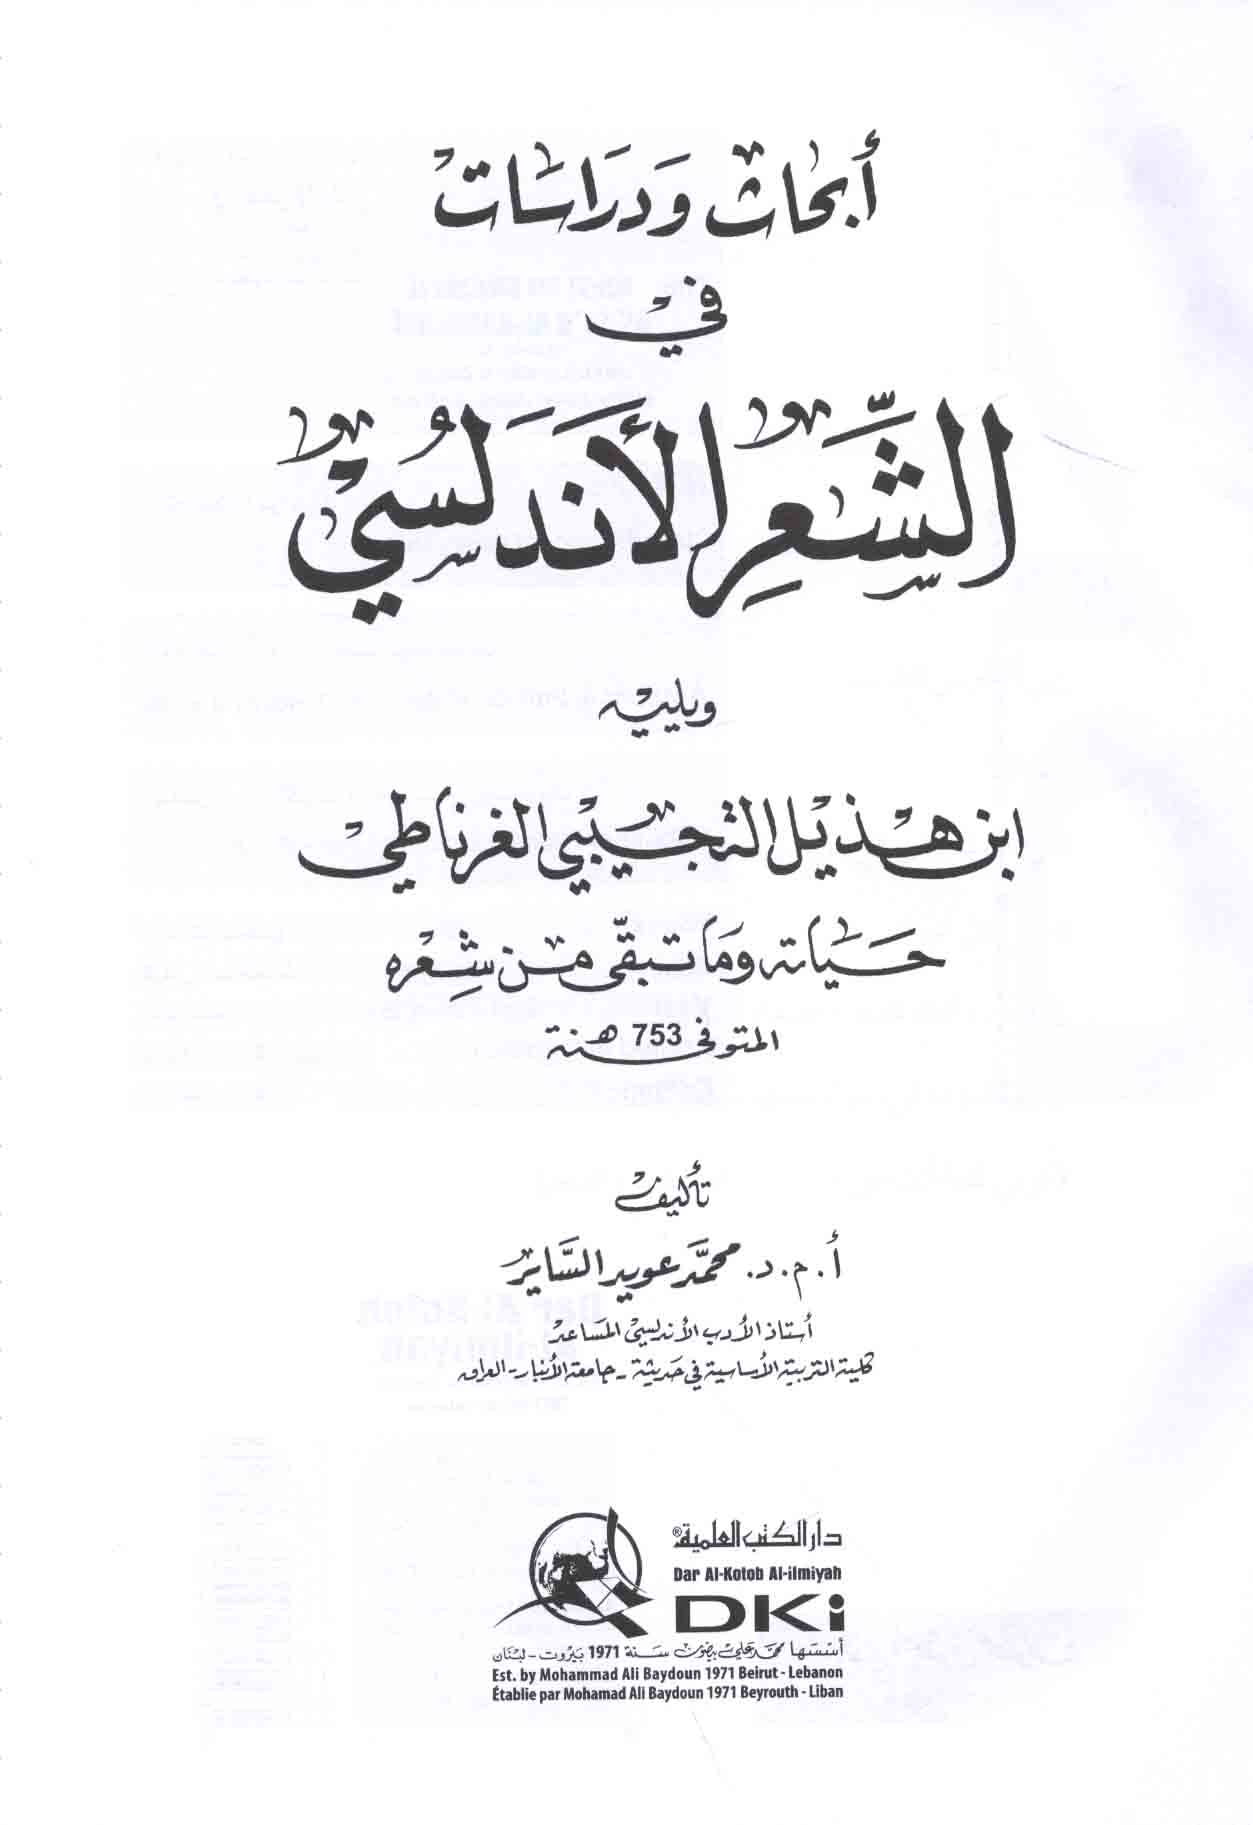 أبحاث ودراسات
في
الشِّعرِ الأَندَلُسي
ويليه
ابن هذيل التجيبي الغرناطي
حَيَاته وَمَا تبقّى من شِعره
المتوفى 753 هـ سنة
تأليف
أ. م. د. محمَّد عويد السَّاير
أستاذ الأدب الأندلسي المساعد
كلية التربية الأساسية في حديثة - جامعة الأنبار - العراق
دار الكتب العلمية®
Dar Al-Kotob Al-ilmiyah
DKi
أسسها محمد علي بيضون سنة 1971 بيروت - لبنان
Est. by Mohammad Ali Baydoun 1971 Beirut - Lebanon
Établie par Mohamad Ali Baydoun 1971 Beyrouth - Liban